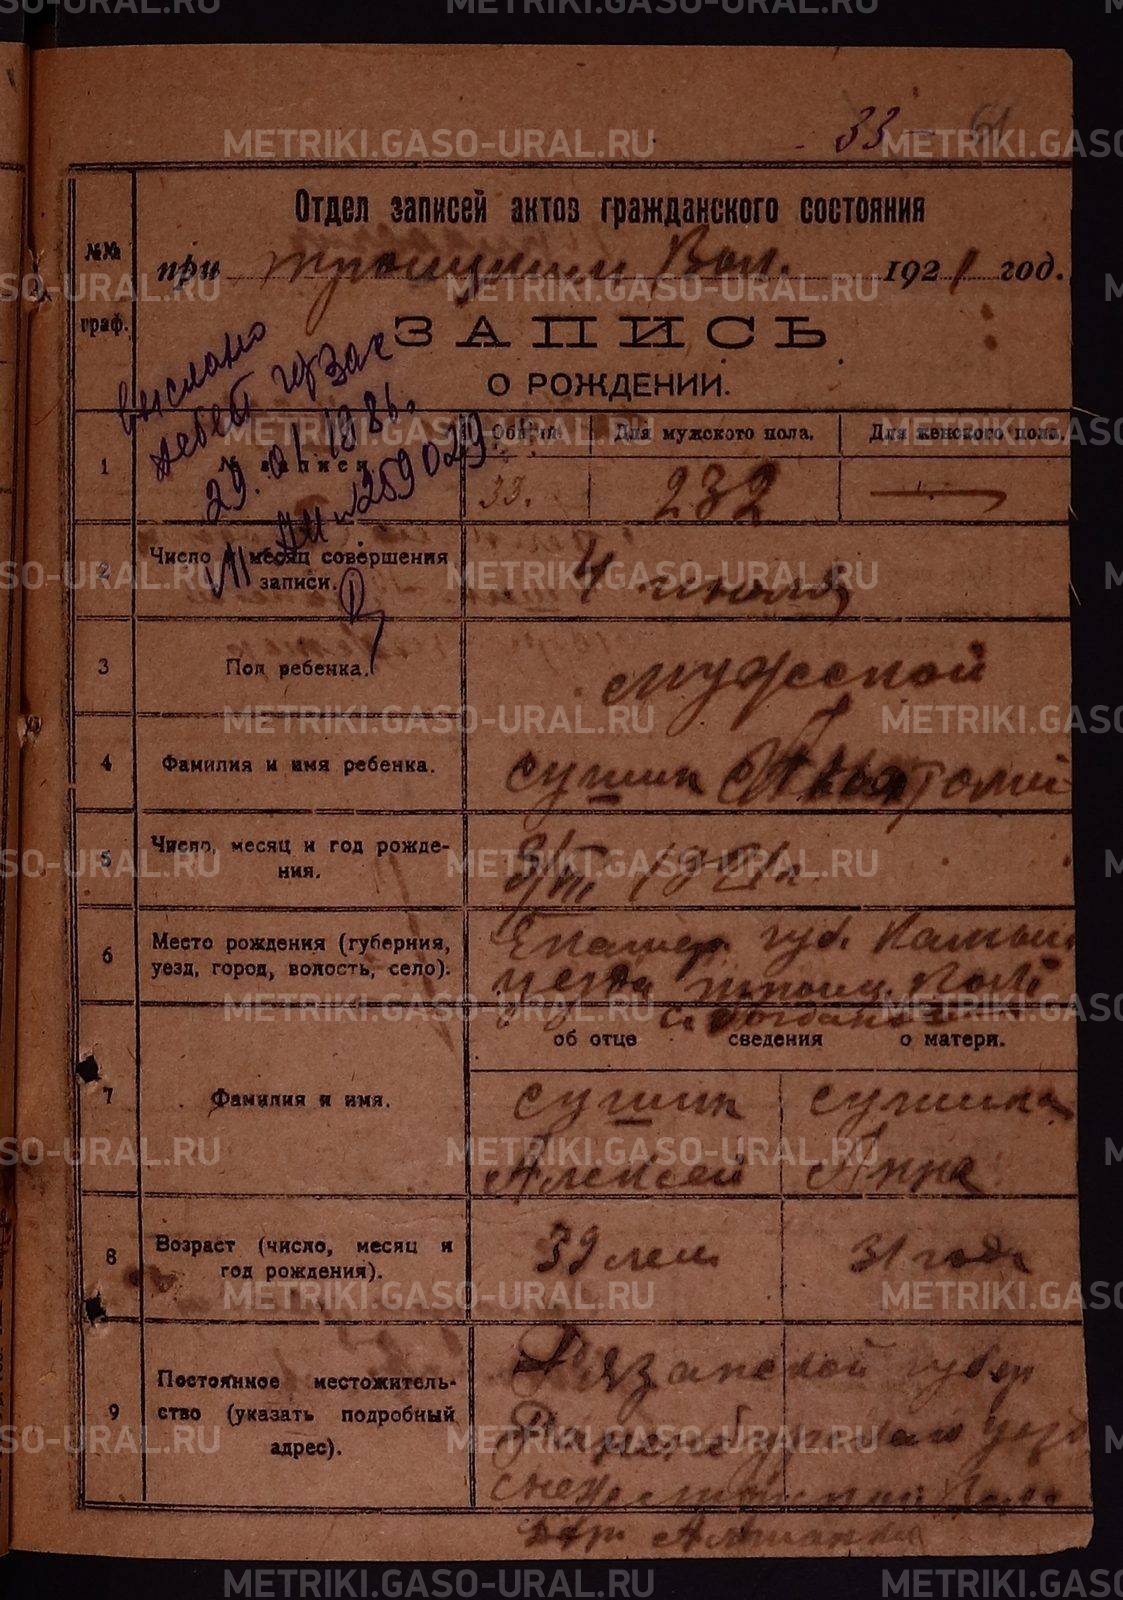 METRIKI.GASO-URAL.RU
33 – 61
Отдел записей актов гражданского состояния
№№ граф.
при Троицкой Вол. 1921 год.
ЗАПИСЬ
О РОЖДЕНИИ.
выслано
29.01.1986.
№ 259029
1
№ записи
Общий
Для мужского пола.
Для женского пола.
33.
232
—
2
Число и месяц совершения
записи.
4 июля
3
Пол ребенка.
мужской
4
Фамилия и имя ребенка.
Сушик Анатолий
5
Число, месяц и год рожде-
ния.
1921 г.
6
Место рождения (губерния,
уезд, город, волость, село).
Екатер. губ. Камыш.
уезда Троиц. вол.
с.
об отце сведения о матери.
7
Фамилия и имя.
Сушик
Алексей
Сушика
Анна
8
Возраст (число, месяц и
год рождения).
39 лет
31 год
9
Постоянное местожитель-
ство (указать подробный
адрес).
Рязанской губер
Раненбургского уезд
вол.
дер.